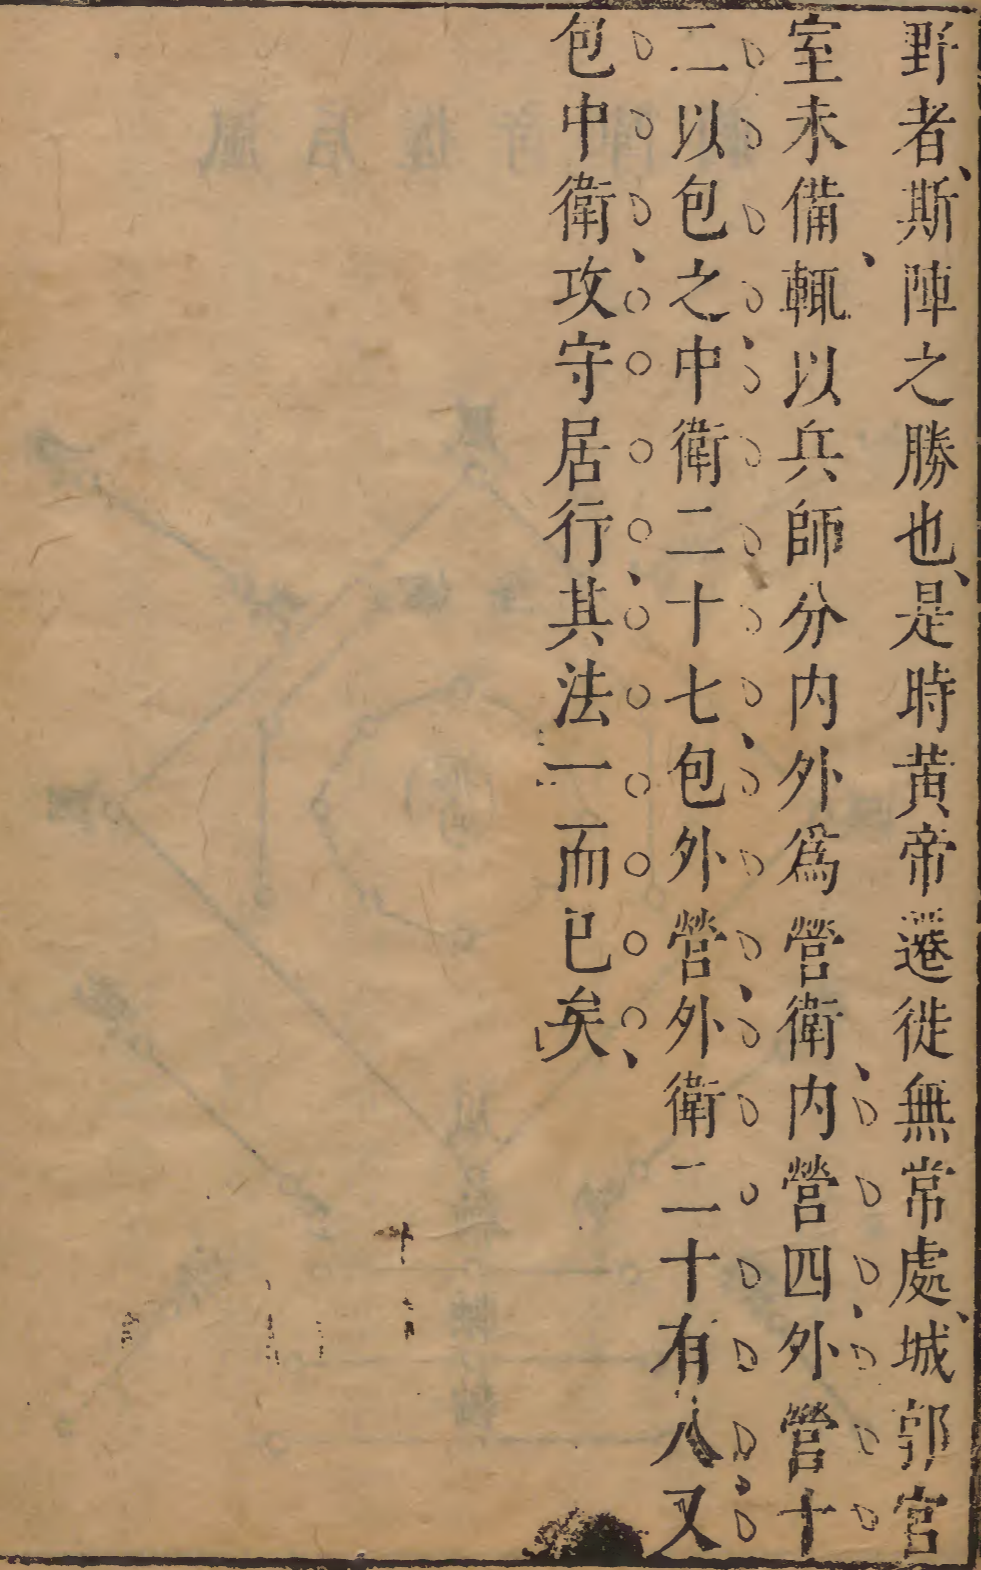 野者、斯陣之勝也、是時黃帝遷徙無常處、城郭宮
室未備、輒以兵師分内外爲營衛、内營四、外營十
二、以包之、中衛二十七、包外營、外衛二十有八、又
包中衛、攻守居行、其法一而已矣、